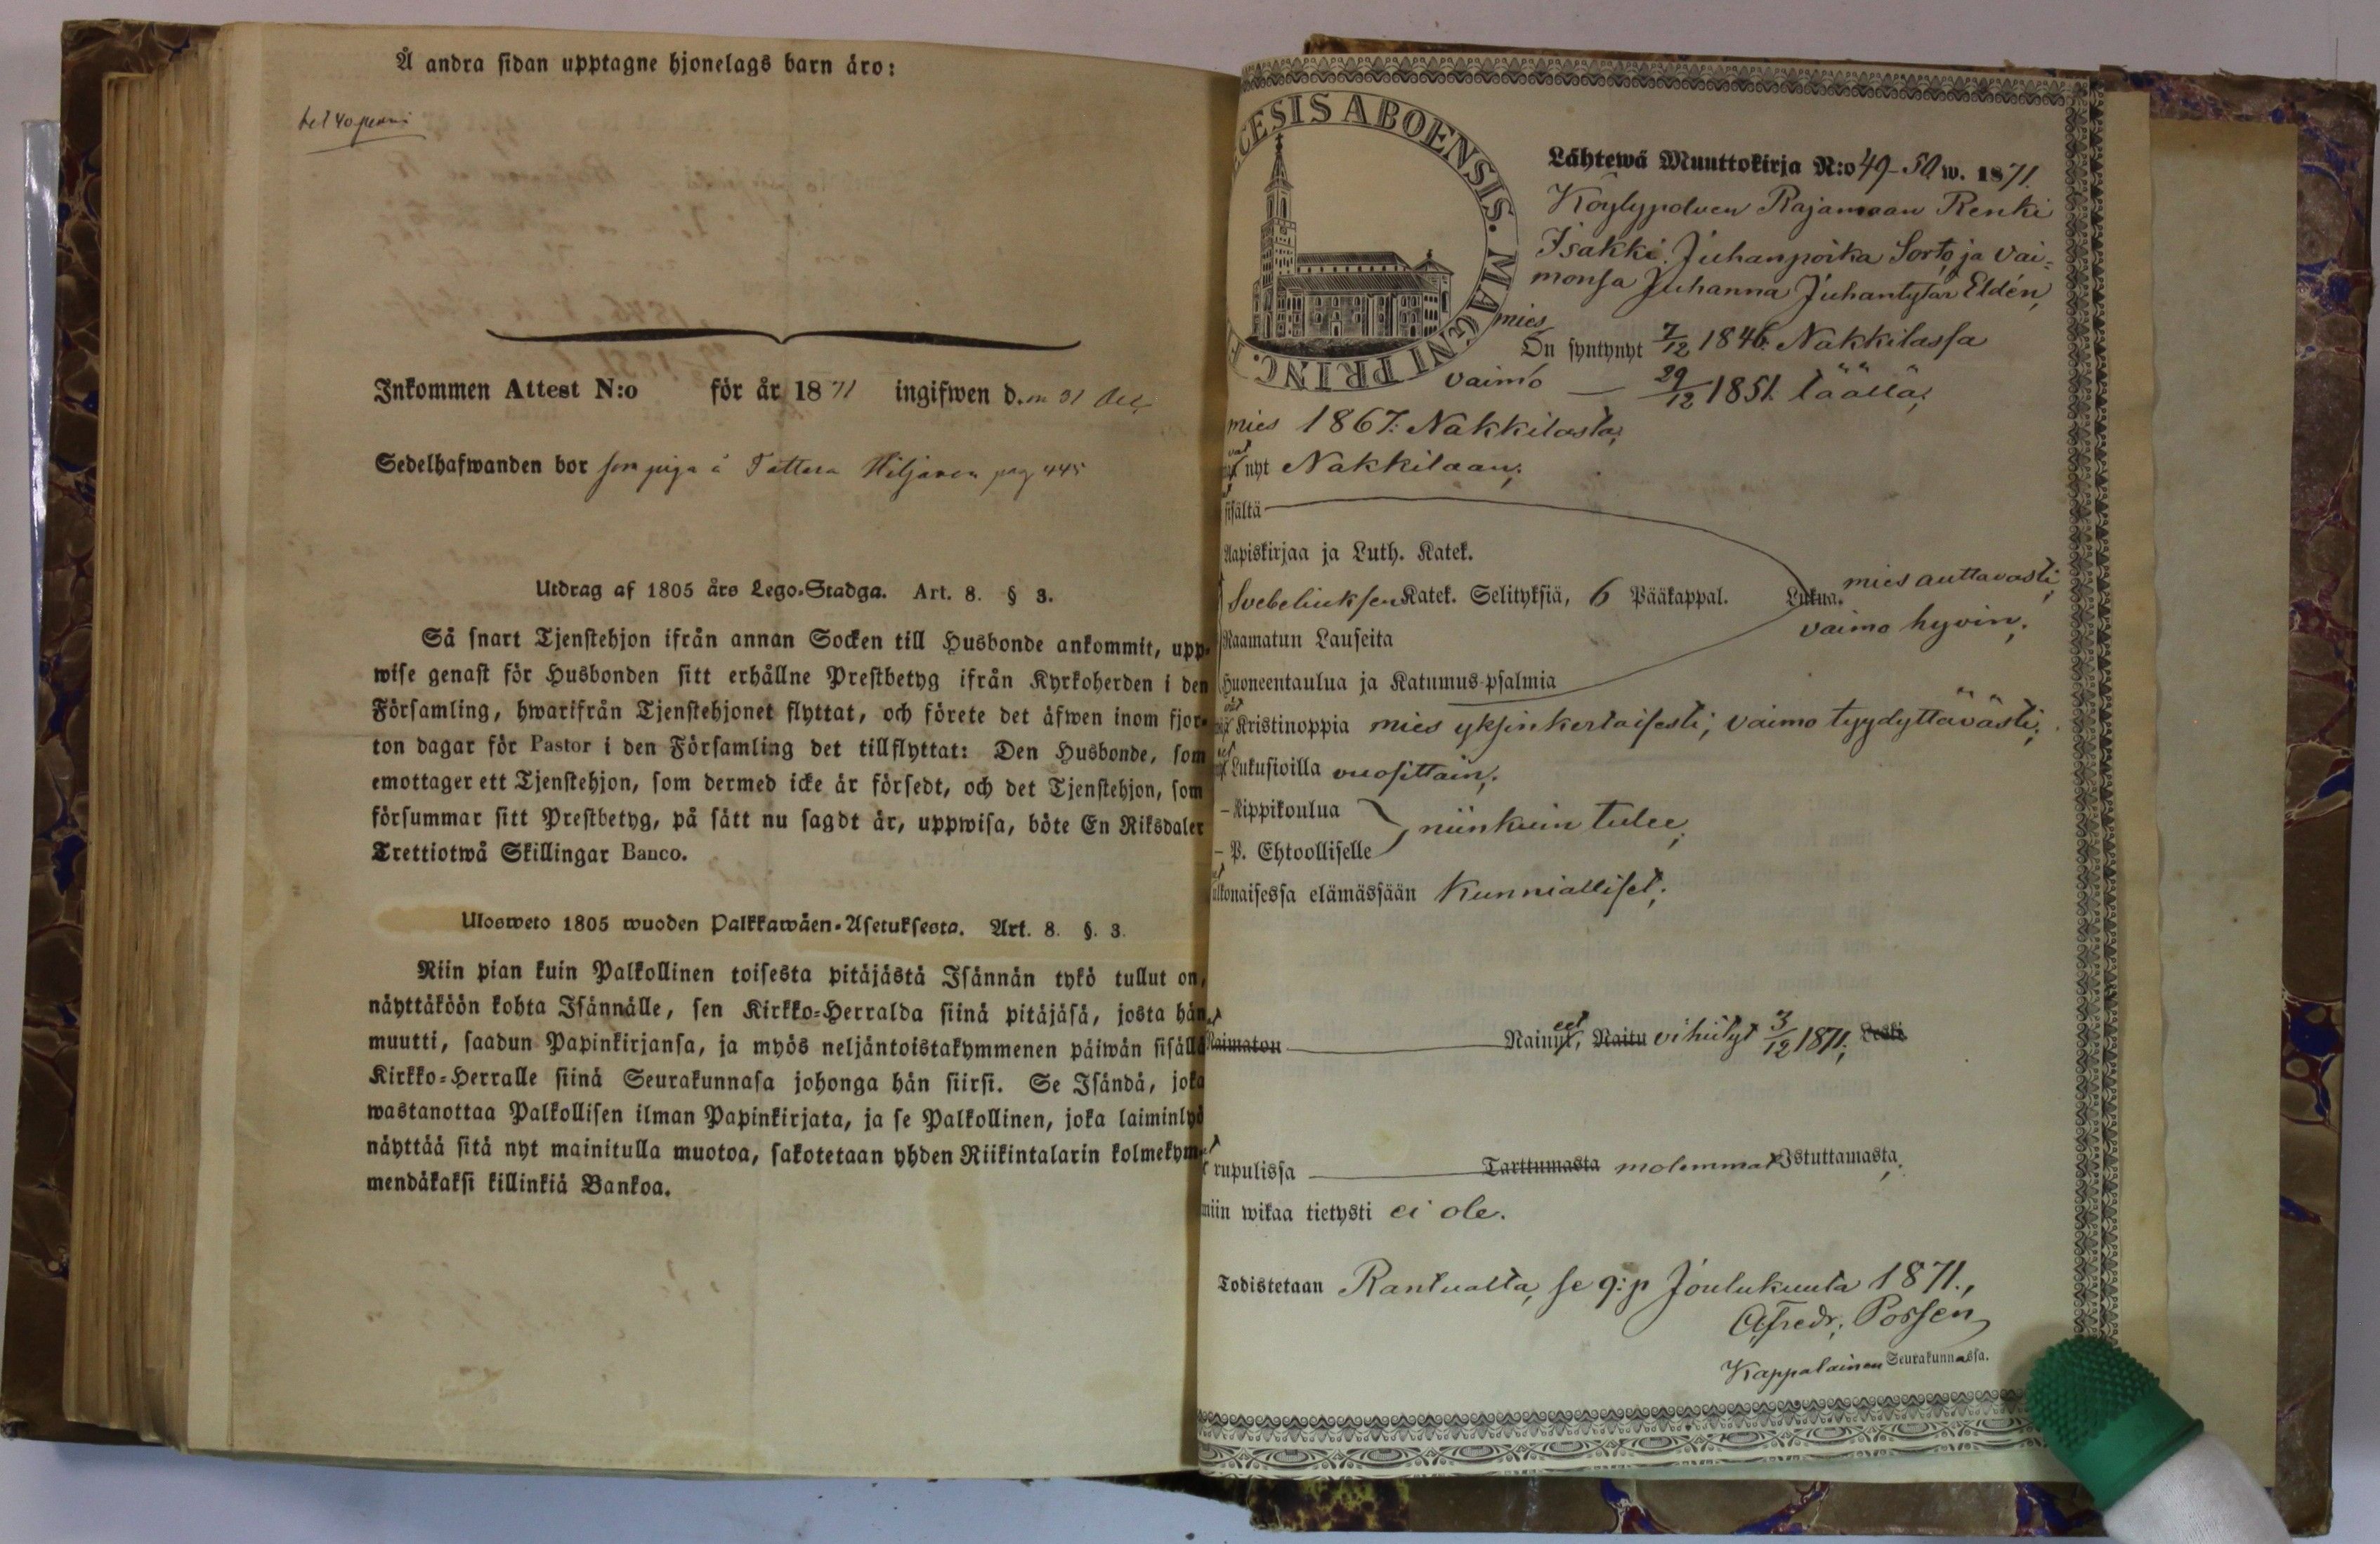 Å andra sidan upptagne hjonelags barn äro:
bet 40 penni
Inkommen Attest N:o för år 1871 ingifwen d.en 31 Dec
Sedelhafwanden bor som piga å Tattara Hiljanen pag 445
Utdrag af 1805 års Lego-Stadga. Art. 8. § 3.
Så snart Tjenstehjon ifrån annan Socken till Husbonde ankommit, upp-
wise genast för Husbonden sitt erhållne Prestbetyg ifrån Kyrkoherden i den
Församling, hwarifrån Tjenstehjonet flyttat, och förete det äfwen inom fjor-
ton dagar för Pastor i den Församling det tillflyttat: Den Husbonde, som
emottager ett Tjenstehjon, som dermed icke är försedt, och det Tjenstehjon, som
försummar sitt Prestbetyg, på sätt nu sagdt är, uppwisa, böte En Riksdaler
Trettiotwå Skillingar Banco.
Ulosweto 1805 wuoden Palkkawäen-Asetuksesta. Art. 8. §. 3.
Niin pian kuin Palkollinen toisesta pitäjästä Isännän tykö tullut on,
näyttäköön kohta Isännälle, sen Kirkko-Herralda siinä pitäjäsä, josta hän
muutti, saadun Papinkirjansa, ja myös neljäntoistakymmenen päiwän sisällä
Kirkko-Herralle siinä Seurakunnasa johonga hän siirsi. Se Isändä, joka
wastanottaa Palkollisen ilman Papinkirjata, ja se Palkollinen, joka laiminlyö
näyttää sitä nyt mainitulla muotoa, sakotetaan yhden Riikintalarin kolmekym-
mendäkaksi killinkiä Bankoa.
CESIS ABOENSIS. MAGNI PRINC. F
Lähtewä Muuttokirja N:o 49-50 w. 1871.
Köylypolven Rajamaan Renki
Isakki Juhanpoika Sorto ja vai-
monsa Juhanna Juhantytär Eldén,
mies
On syntynyt 7/12 1846. Nakkilassa
vaimo — 29/12 1851. täällä;
mies 1867. Nakkilasta;
vat
nyt Nakkilaan;
sisältä
Aapiskirjaa ja Luth. Katek.
Svebeliuksen Katek. Selityksiä, 6 Pääkappal. Lukua. mies auttavasti;
vaimo hyvin;
Raamatun Lauseita
Huoneentaulua ja Katumus-psalmia
Kristinoppia mies yksinkertaisesti; vaimo tyydyttävästi;
Lukusioilla vuosittain;
- Rippikoulua
niinkuin tulee;
- P. Ehtoolliselle
ulkonaisessa elämässään kunnialliset;
Naimaton Nainyt, eet Naitu vihityt 3/12 1871; Leski
rupulissa Tarttumasta molemmat Istuttamasta;
miin wikaa tietysti ei ole.
Todistetaan Rantualta, se 9:p Joulukuuta 1871.,
Afredr. Possen,
Kappalainen Seurakunnassa.